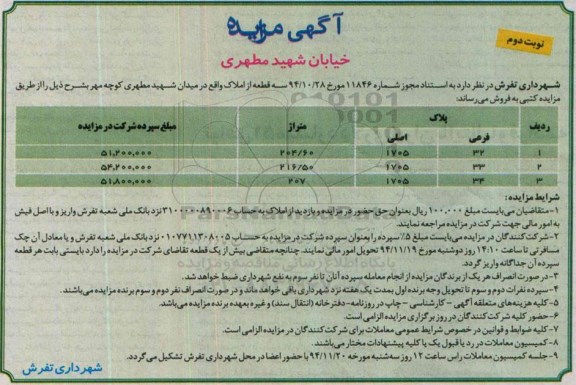 آگهی مزایده
نوبت دوم
خیابان شهید مطهری
شهرداری تفرش در نظر دارد به استناد مجوز شماره ۱۱۸۴۶ مورخ ۹۴/۱۰/۲۸ سه قطعه از املاک واقع در میدان شهید مطهری کوچه مهر بشرح ذیل را از طریق
مزایده کتبی به فروش می‌رساند:
ردیف پلاک متراژ مبلغ سپرده شرکت در مزایده
فرعی اصلی
۱ ۳۲ ۱۷۰۵ ۲۰۴/۶۰ ۵۱,۲۰۰,۰۰۰
۲ ۳۳ ۱۷۰۵ ۲۱۶/۵۰ ۵۴,۲۰۰,۰۰۰
۳ ۳۴ ۱۷۰۵ ۲۰۷ ۵۱,۸۰۰,۰۰۰
شرایط مزایده:
۱- متقاضیان می‌بایست مبلغ ۱۰۰,۰۰۰ ریال بعنوان حق حضور در مزایده و بازدید از املاک به حساب نزد بانک ملی شعبه تفرش واریز و با اصل فیش
به امور مالی جهت شرکت در مزایده مراجعه نمایند.
۲- شرکت‌کنندگان در مزایده می‌بایست مبلغ ۵٪ سپرده را بعنوان سپرده شرکت در مزایده به حساب ۰۱۰۷۷۱۱۳۰۸۰۰۵ نزد بانک ملی شعبه تفرش و یا معادل آن چک
مسافرتی تا ساعت ۱۴:۱۰ روز دوشنبه مورخ ۹۴/۱۱/۱۹ تحویل امور مالی نمایند. چنانچه متقاضی بیش از یک قطعه تقاضای شرکت در مزایده را دارد بایستی بابت هر قطعه
سپرده آن جداگانه واریز گردد.
۳- در صورت انصراف هر یک از برندگان مزایده از انجام معامله سپرده آنان تا نفر سوم به نفع شهرداری ضبط خواهد شد.
۴- سپرده نفرات دوم و سوم تا تحویل وجه برنده اول بمدت یک هفته نزد شهرداری باقی خواهد ماند و در صورت انصراف نفر دوم و سوم برنده مزایده می‌باشند.
۵- کلیه هزینه‌های متعلقه آگهی - کارشناسی - چاپ در روزنامه - دفترخانه (انتقال سند) و غیره بعهده برنده مزایده می‌باشد.
۶- حضور کلیه شرکت‌کنندگان در روز برگزاری مزایده الزامی است.
۷- کلیه ضوابط و قوانین در خصوص شرایط عمومی معاملات برای شرکت‌کنندگان در مزایده الزامی است.
۸- کمیسیون معاملات در رد یا قبول یک یا کلیه پیشنهادات مختار می‌باشند.
۹- جلسه کمیسیون معاملات راس ساعت ۱۲ روز سه‌شنبه مورخه ۹۴/۱۱/۲۰ با حضور اعضا در محل شهرداری تفرش تشکیل می‌گردد.
شهرداری تفرش